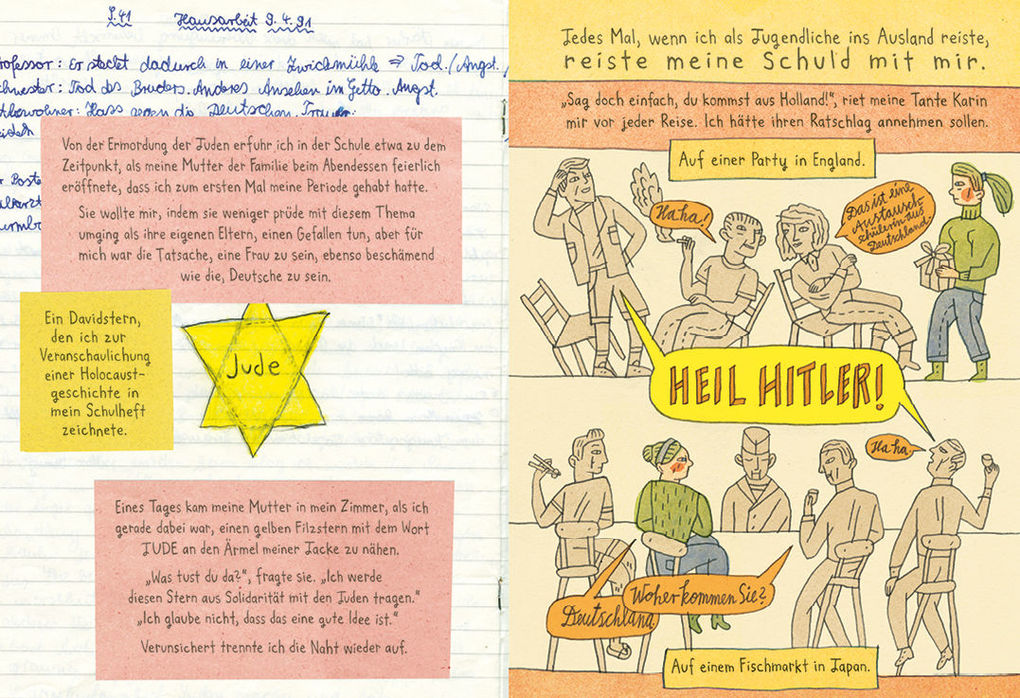 S.41 Hausarbeit 9.4.91
rofessor: Er steckt dadurch in einer Zwickmühle ⇒ Tod. / Angst. /
chwester: Tod des Bruders. Anderes Ansehen im Getto. Angst.
tbewohner: Hass gegen die Deutschen. Trauer.
Von der Ermordung der Juden erfuhr ich in der Schule etwa zu dem
Zeitpunkt, als meine Mutter der Familie beim Abendessen feierlich
eröffnete, dass ich zum ersten Mal meine Periode gehabt hatte.
Sie wollte mir, indem sie weniger prüde mit diesem Thema
umging als ihre eigenen Eltern, einen Gefallen tun, aber für
mich war die Tatsache, eine Frau zu sein, ebenso beschämend
wie die, Deutsche zu sein.
Ein Davidstern,
den ich zur
Veranschaulichung
einer Holocaust-
geschichte in
mein Schulheft
zeichnete.
Jude
Eines Tages kam meine Mutter in mein Zimmer, als ich
gerade dabei war, einen gelben Filzstern mit dem Wort
JUDE an den Ärmel meiner Jacke zu nähen.
„Was tust du da?“, fragte sie. „Ich werde
diesen Stern aus Solidarität mit den Juden tragen.“
„Ich glaube nicht, dass das eine gute Idee ist.“
Verunsichert trennte ich die Naht wieder auf.
Jedes Mal, wenn ich als Jugendliche ins Ausland reiste,
reiste meine Schuld mit mir.
„Sag doch einfach, du kommst aus Holland!“, riet meine Tante Karin
mir vor jeder Reise. Ich hätte ihren Ratschlag annehmen sollen.
Auf einer Party in England.
Haha!
Das ist eine
Austausch-
schülerin aus
Deutschland.
HEIL HITLER!
Ha ha
Woher kommen Sie?
Deutschland
Auf einem Fischmarkt in Japan.